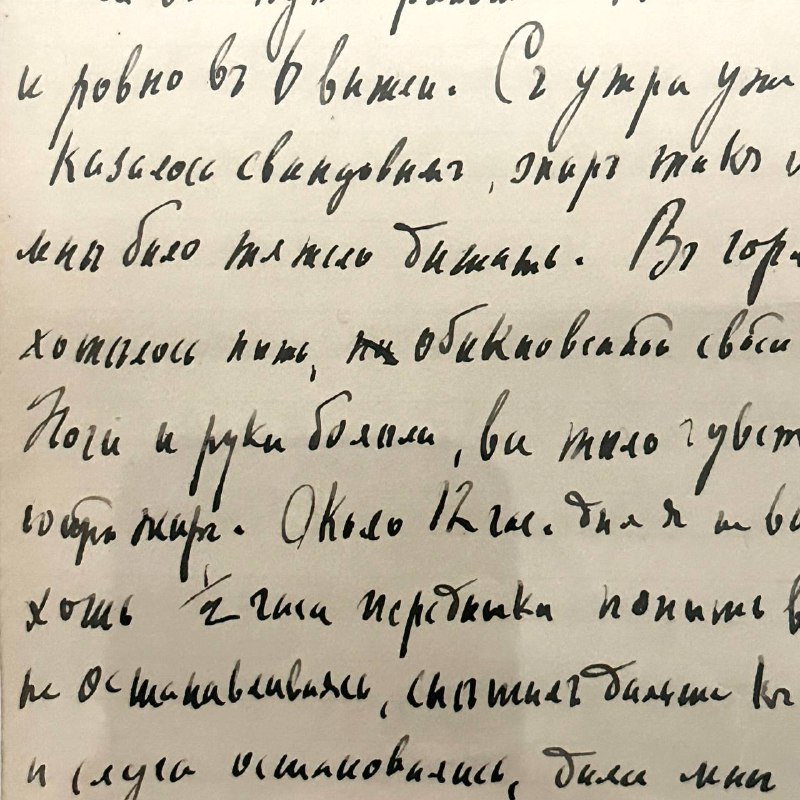 и ровно въ 6 вышли. Съ утра уже
казалось свинцовымъ, жаръ такъ
мнѣ было тяжело дышать. Въ горл
хотѣлось пить,
Ноги и руки болѣли, все тѣло чувст
жаръ. Около 12 час. дня я не
хоть 1/2 часа передышки попить в
не останавливаясь, спѣшилъ дальше къ
и слуга остановились, дали мнѣ